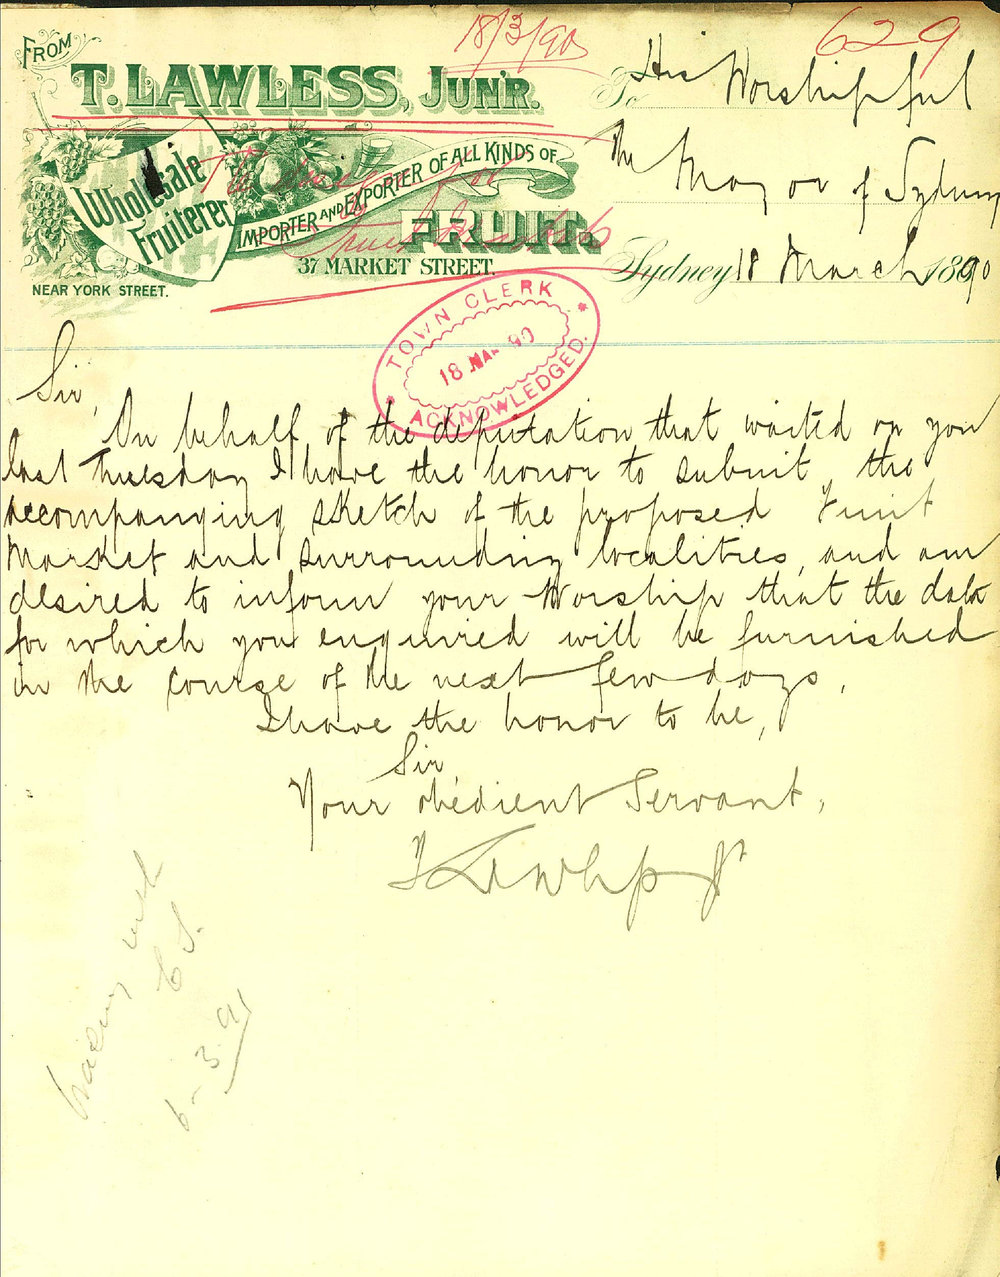 18/3/90
629
FROM
T. LAWLESS, JUNR.
Wholesale
Fruiterer
IMPORTER AND EXPORTER OF ALL KINDS OF
FRUIT.
37 MARKET STREET.
NEAR YORK STREET.
To His Worshipful
The Mayor of Sydney
Sydney 18 March 1890
TOWN CLERK
18 MAR 90
ACKNOWLEDGED.
Sir,
On behalf of the deputation that waited on you
last Tuesday I have the honor to submit the
accompanying sketch of the proposed Fruit
Market and surrounding localities, and am
desired to inform your Worship that the data
for which you enquired will be furnished
in the course of the next few days.
I have the honor to be,
Sir
Your obedient Servant,
T Lawless Jr
6-3.91